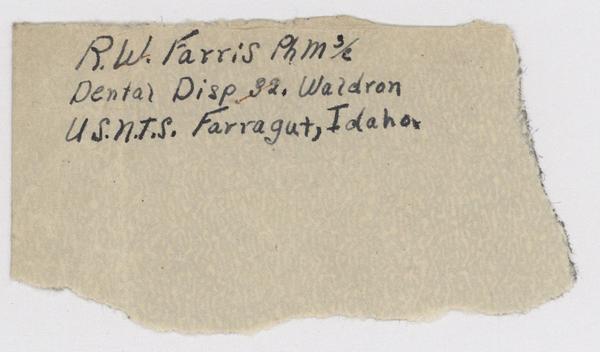 R.W. Farris PhM 3/c
Dental Disp 32. Waldron
U.S.N.T.S. Farragut, Idaho.